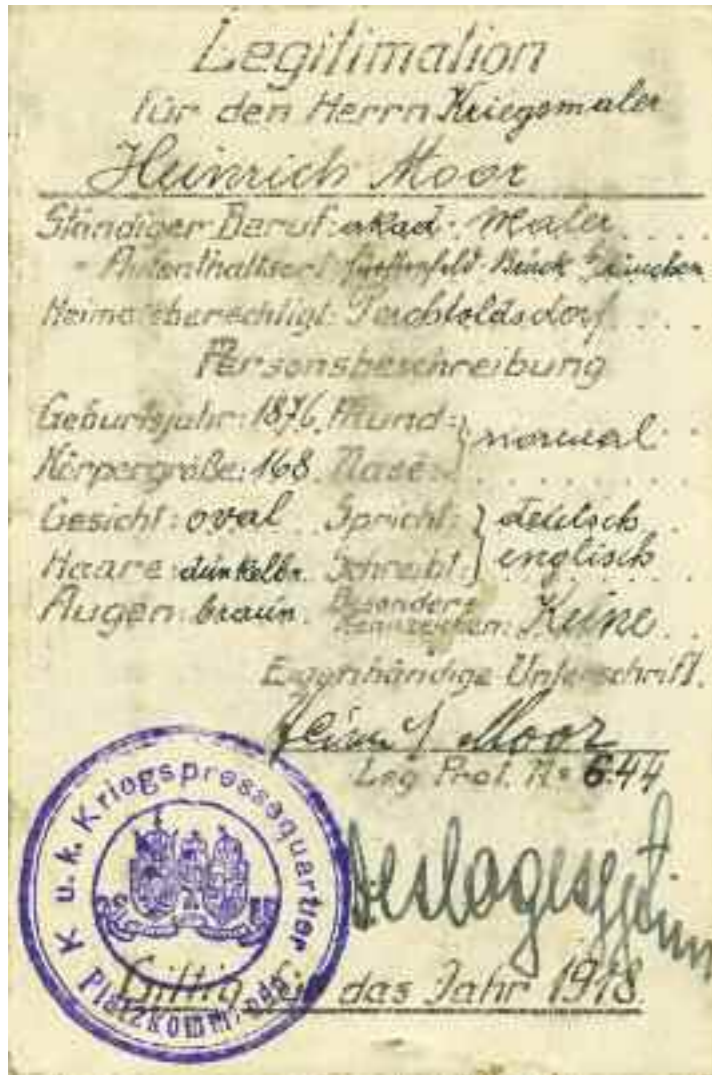 Legitimation
für den Herrn Kriegsmaler
Heinrich Moor
Ständiger Beruf: akad. Maler
" Aufenthaltsort: Fürstenfeld-Bruck b/München
Heimatsberechtigt: Perchtoldsdorf
Personsbeschreibung
Geburtsjahr: 1876. Mund: } normal
Körpergröße: 168. Nase:
Gesicht: oval Spricht: } deutsch
Haare: dunkelbr. Schreibt: } englisch
Augen: braun. Besondere Kennzeichen: Keine
Eigenhändige Unterschrift.
Heinrich Moor
Leg. Prot. Nº 644
K. u. k. Kriegspressequartier
Platzkommando
Giltig für das Jahr 1918.